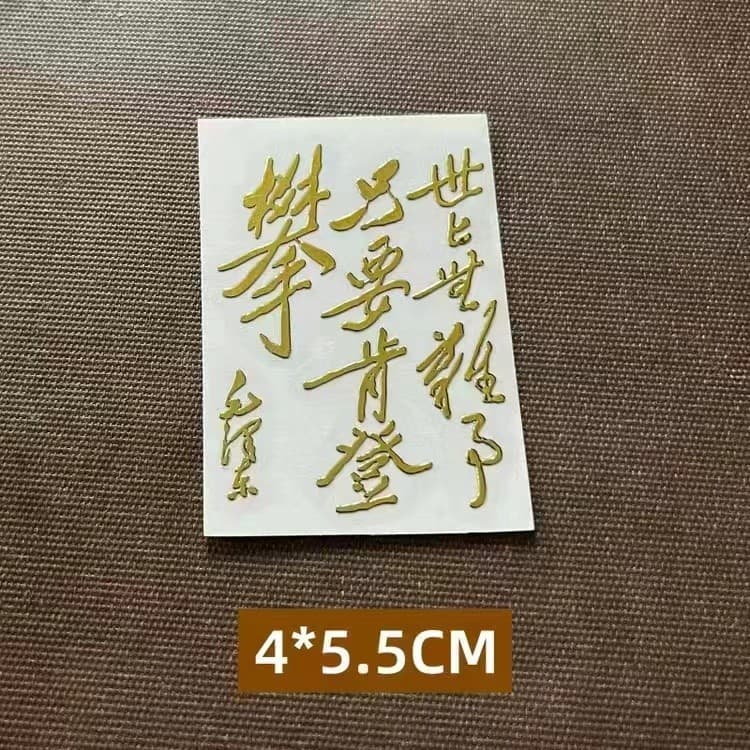 世上无难事
只要肯登
攀
毛泽东
4*5.5CM